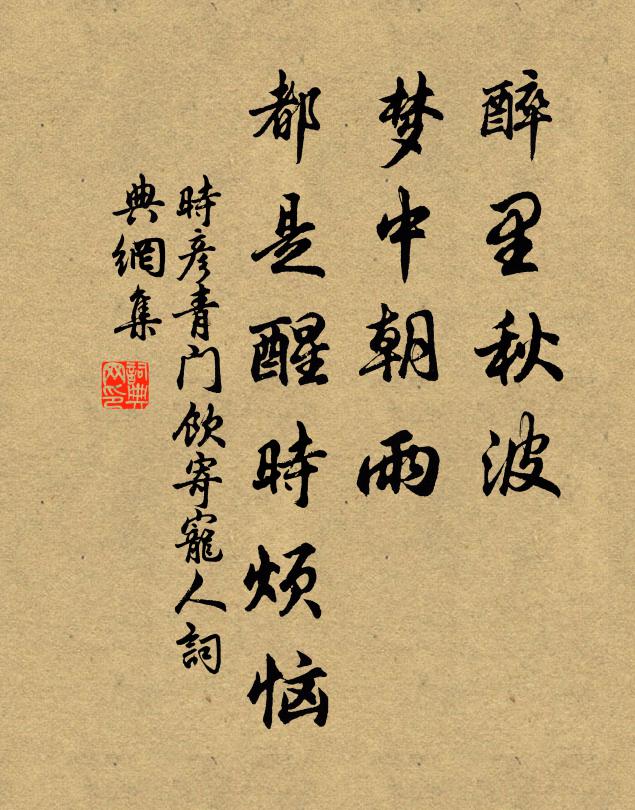 醉里秋波
梦中朝雨
都是醒時烦恼
時彦青门饮寄寵人詞
典網集
詞典网印